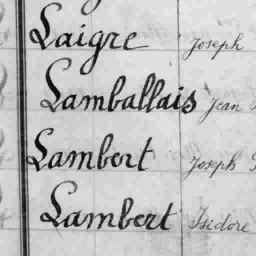 Laigre Joseph
Lamballais Jean
Lambert Joseph
Lambert Isidore